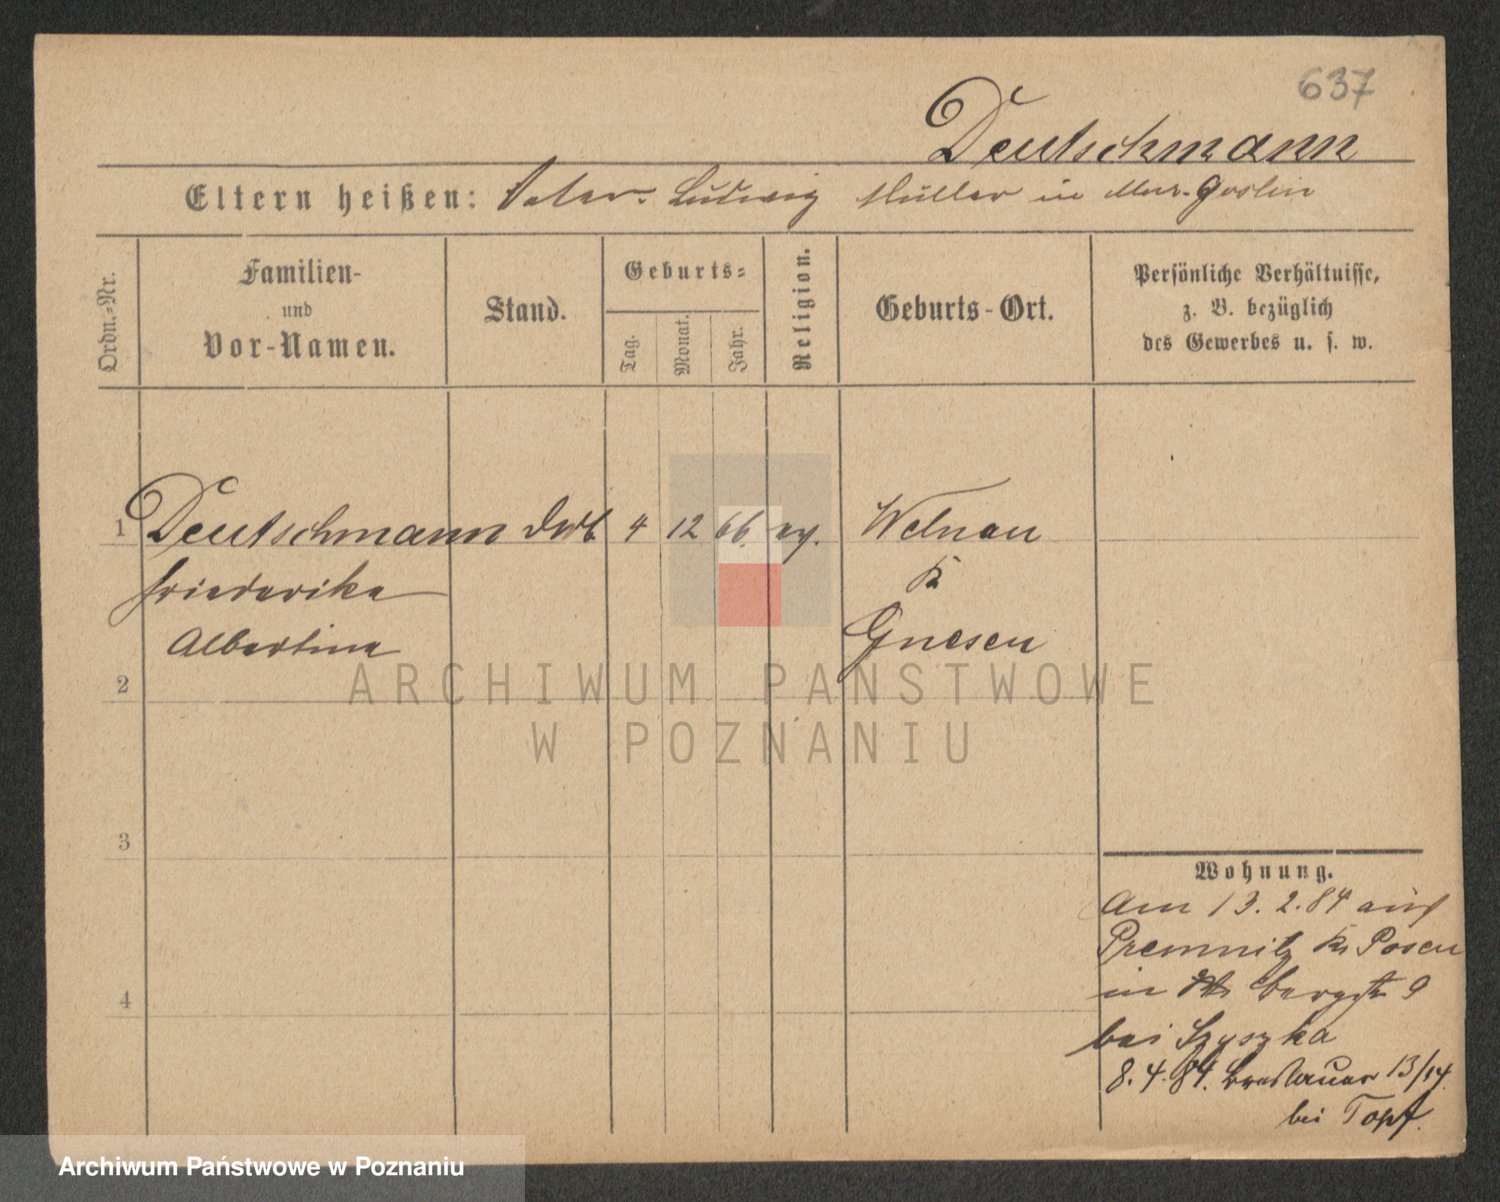 637
Deutschmann
Eltern heißen: Vater. Ludwig Müller in Mur. Goslin
Ordn.-Nr.
Familien-
und
Vor-Namen.
Stand.
Geburts-
Tag.
Monat.
Jahr.
Religion.
Geburts-Ort.
Persönliche Verhältnisse,
z. B. bezüglich
des Gewerbes u. s. w.
1 Deutschmann 4 12 66. ev. Welnau
Friederike K
Albertine Gnesen
2
3
4
Wohnung.
Am 13. 2. 84 auf
Premnitz Kr Posen
in Bergstr 9
bei Szyszka
8. 4. 84. Breslauer 13/14
bei Topf.
ARCHIWUM PAŃSTWOWE
W POZNANIU
Archiwum Państwowe w Poznaniu